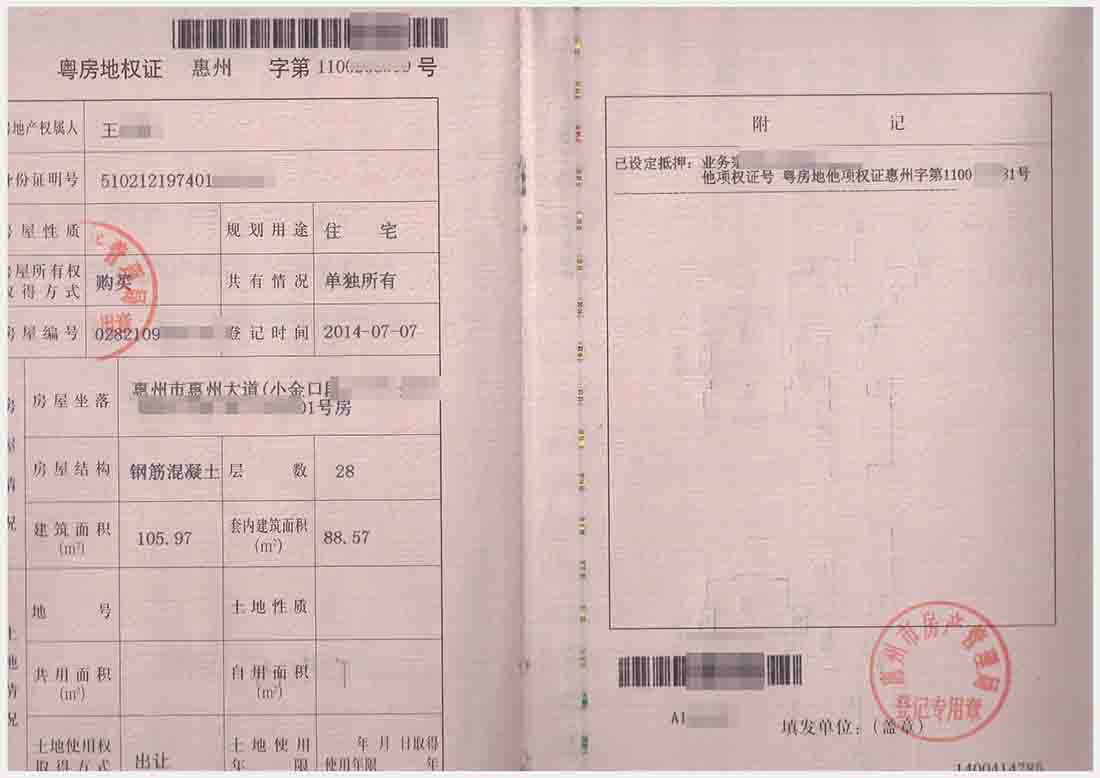 粤房地权证 惠州 字第1100 号
地产权属人 王
份证明号 510212197401
屋性质 规划用途 住宅
屋所有权取得方式 购买 共有情况 单独所有
屋编号 0282109 登记时间 2014-07-07
房屋坐落 惠州市惠州大道(小金口段
01号房
房屋结构 钢筋混凝土 层数 28
建筑面积(㎡) 105.97 套内建筑面积(㎡) 88.57
地号 土地性质
共用面积(㎡) 自用面积(㎡)
土地使用权取得方式 出让 土地使用年限 年 月 日取得
使用年限 年
附记
已设定抵押: 业务
他项权证号 粤房地他项权证惠州字第1100 81号
惠州市房产管理局
登记专用章
A1
填发单位:(盖章)